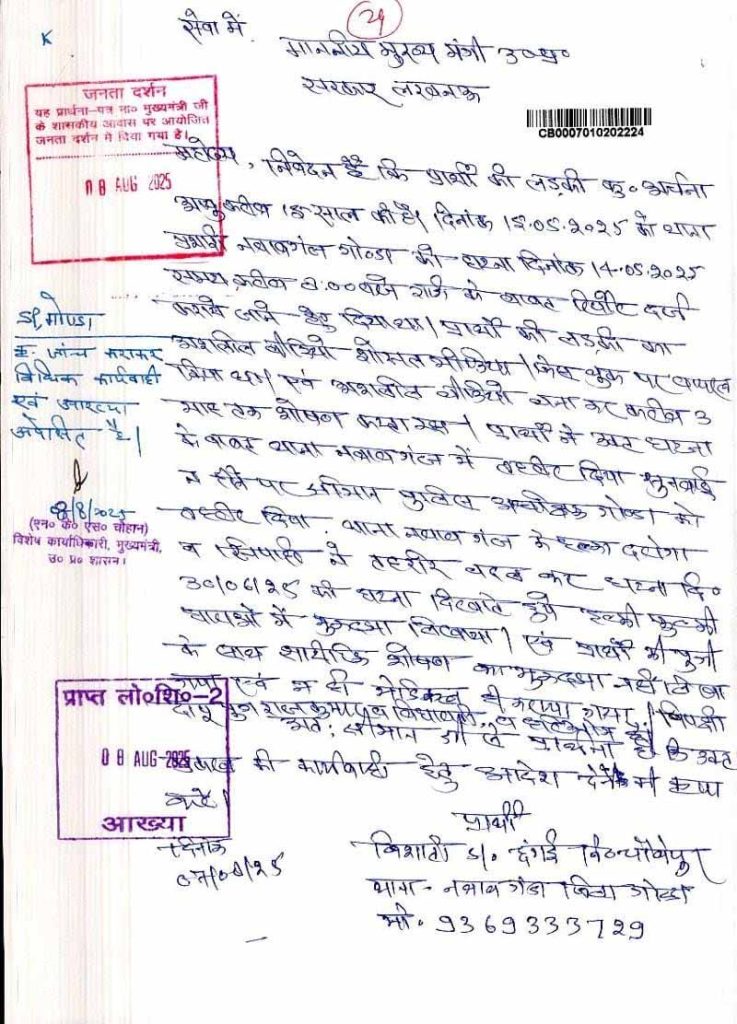 24
K
सेवा में
माननीय मुख्य मंत्री उ०प्र०
सरकार लखनऊ
जनता दर्शन
यह प्रार्थना-पत्र मा० मुख्यमंत्री जी
के शासकीय आवास पर आयोजित
जनता दर्शन में दिया गया है।
08 AUG 2025
CB0007010202224
महोदय, निवेदन है कि प्रार्थी की लड़की कु० अर्चना
आयु करीब साल की है। दिनांक 15.05.2025 को थाना
प्रभारी नवाबगंज गोण्डा को घटना दिनांक 14.05.2025
समय करीब 8.00 बजे रात्रि के बावत रिपोर्ट दर्ज
कराये जाने हेतु दिया था। प्रार्थी की लड़की का
अशलील वीडियो शोसल मीडिया पर वायरल
किया था। एवं अशलील वीडियो बना कर करीब 3
माह तक शोषण करता रहा। प्रार्थी ने उक्त घटना
के बावत थाना नवाबगंज में तहरीर दिया सुनवाई
न होने पर श्रीमान पुलिस अधीक्षक गोण्डा को
तहरीर दिया थाना नवाब गंज के हल्का दरोगा
व सिपाही ने तहरीर बदल कर घटना दि०
30/06/25 की घटना दिखाते हुये हल्की फुल्की
धाराओं में मुकदमा लिखाया। एवं प्रार्थी की पुत्री
के साथ शारीरिक शोषण का मुकदमा नहीं लिखा
गया एवं न ही मेडिकल ही कराया गया। विपक्षी
अत: श्रीमान जी से प्रार्थना है कि उक्त
की कार्यवाही हेतु आदेश देने की कृपा
करें।
SP, गोण्डा
कृ. जांच कराकर
विधिक कार्यवाही
एवं आख्या
अपेक्षित है।
08/8/2025
(एन० के० एस० चौहान)
विशेष कार्याधिकारी, मुख्यमंत्री,
उ० प्र० शासन।
प्राप्त लो०शि०-2
08 AUG 2025
आख्या
प्रार्थी
दिनांक
07/08/25
थाना - नवाबगंज जिला गोण्डा
मो. 9369333729